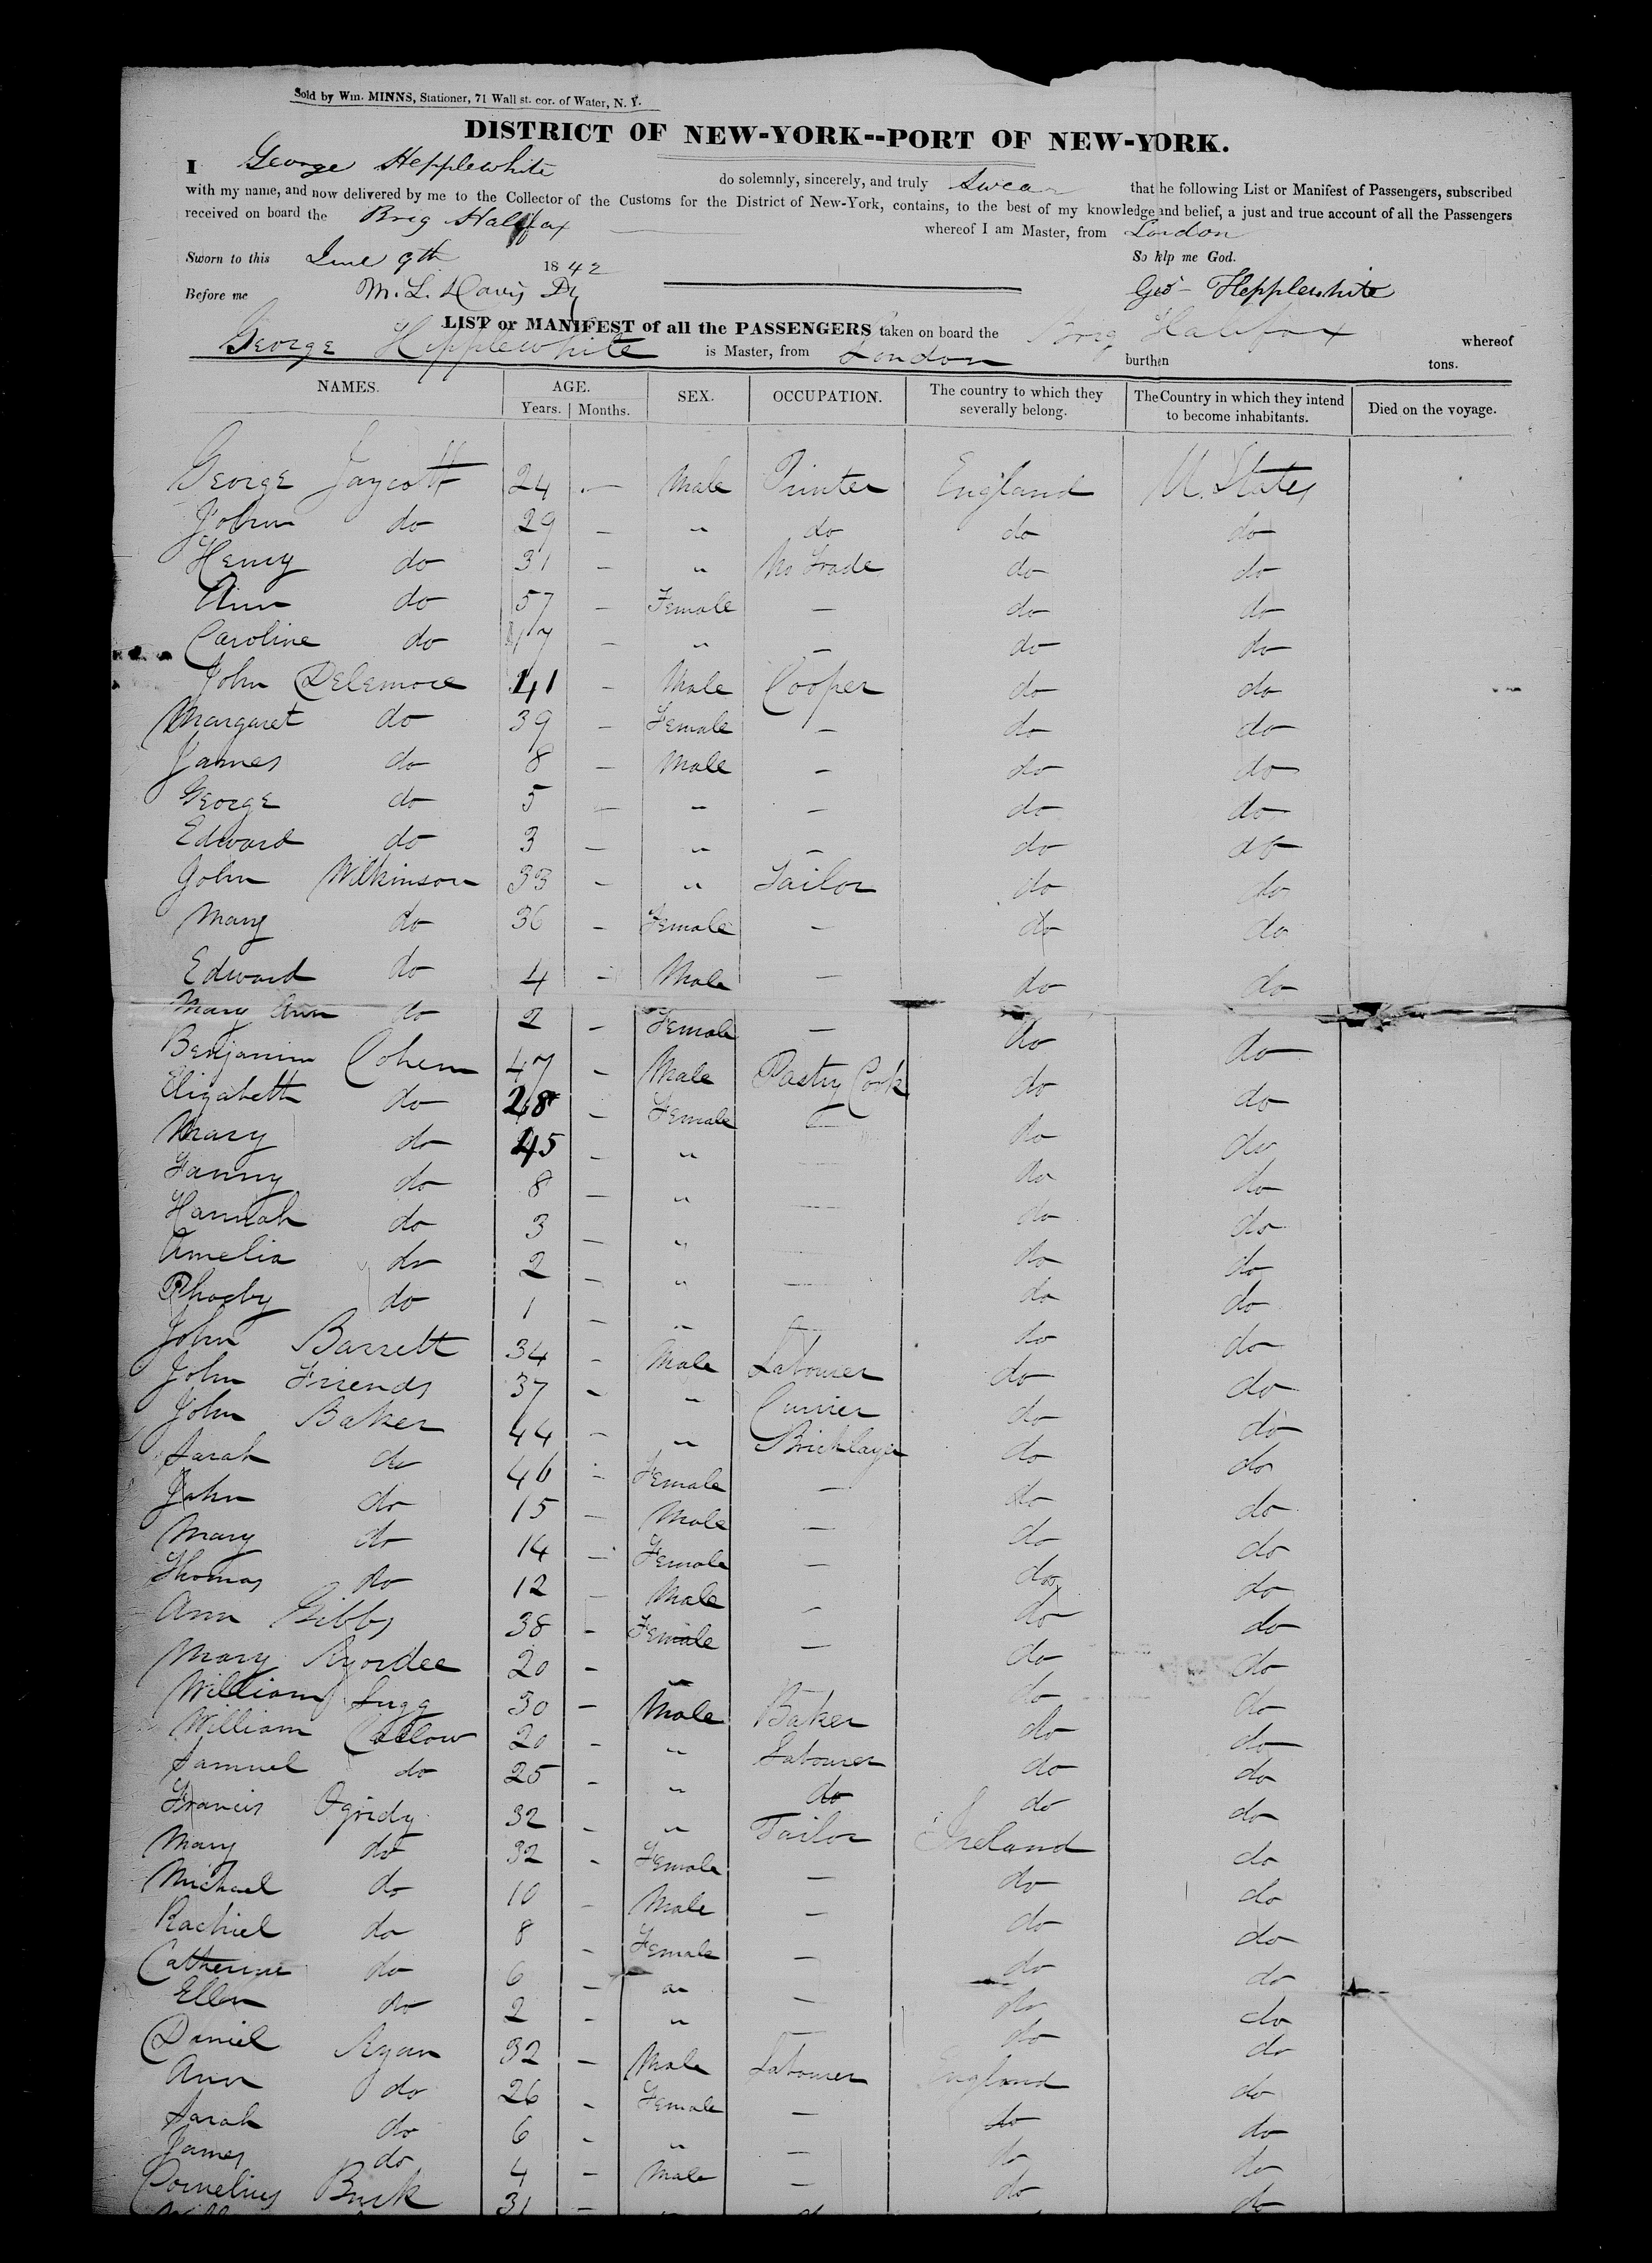 Sold by Wm. MINNS, Stationer, 71 Wall st. cor. of Water, N. Y.
DISTRICT OF NEW-YORK--PORT OF NEW-YORK.
I George Hepplewhite do solemnly, sincerely, and truly Swear that he following List or Manifest of Passengers, subscribed
with my name, and now delivered by me to the Collector of the Customs for the District of New-York, contains, to the best of my knowledge and belief, a just and true account of all the Passengers
received on board the Brig Halifax whereof I am Master, from London
Sworn to this June 9th 1842 So help me God.
Before me M. L. Davis Dy Geo Hepplewhite
LIST or MANIFEST of all the PASSENGERS taken on board the Brig Halifax whereof
George Hipplewhite is Master, from London burthen tons.
NAMES. AGE. Years. Months. SEX. OCCUPATION. The country to which they severally belong. The Country in which they intend to become inhabitants. Died on the voyage.
George Jaycott 24 - Male Printer England U. States
John do 29 - " do do do
Henry do 31 - " No Trade do do
Ann do 57 - Female - do do
Caroline do 17 - " - do do
John Delemore 41 - Male Cooper do do
Margaret do 39 - Female - do do
James do 8 - Male - do do
George do 5 - " - do do
Edward do 3 - " - do do
John Wilkinson 33 - " Tailor do do
Mary do 36 - Female - do do
Edward do 4 - Male - do do
Mary Ann do 2 - Female - do do
Benjamin Cohen 47 - Male Pastry Cook do do
Elizabeth do 28 - Female - do do
Mary do 45 - " - do do
Fanny do 8 - " - do do
Hannah do 3 - " - do do
Amelia do 2 - " - do do
Phoeby do 1 - " - do do
John Barrett 34 - Male Labourer do do
John Friends 37 - " Currier do do
John Baker 44 - " Bricklayer do do
Sarah do 46 - Female - do do
John do 15 - Male - do do
Mary do 14 - Female - do do
Thomas do 12 - Male - do do
Ann Gibbs 38 - Female - do do
Mary 20 - " - do do
William Sugg 30 - Male Baker do do
William 20 - " Labourer do do
Samuel do 25 - " do do do
Francis Ogridy 32 - " Tailor Ireland do
Mary do 32 - Female - do do
Michael do 10 - Male - do do
Rachiel do 8 - Female - do do
Catherine do 6 - " - do do
Ellen do 2 - " - do do
Daniel Ryan 32 - Male Labourer England do
Ann do 26 - Female - do do
Sarah do 6 - " - do do
James do 4 - Male - do do
Cornelius Buck 31 - do